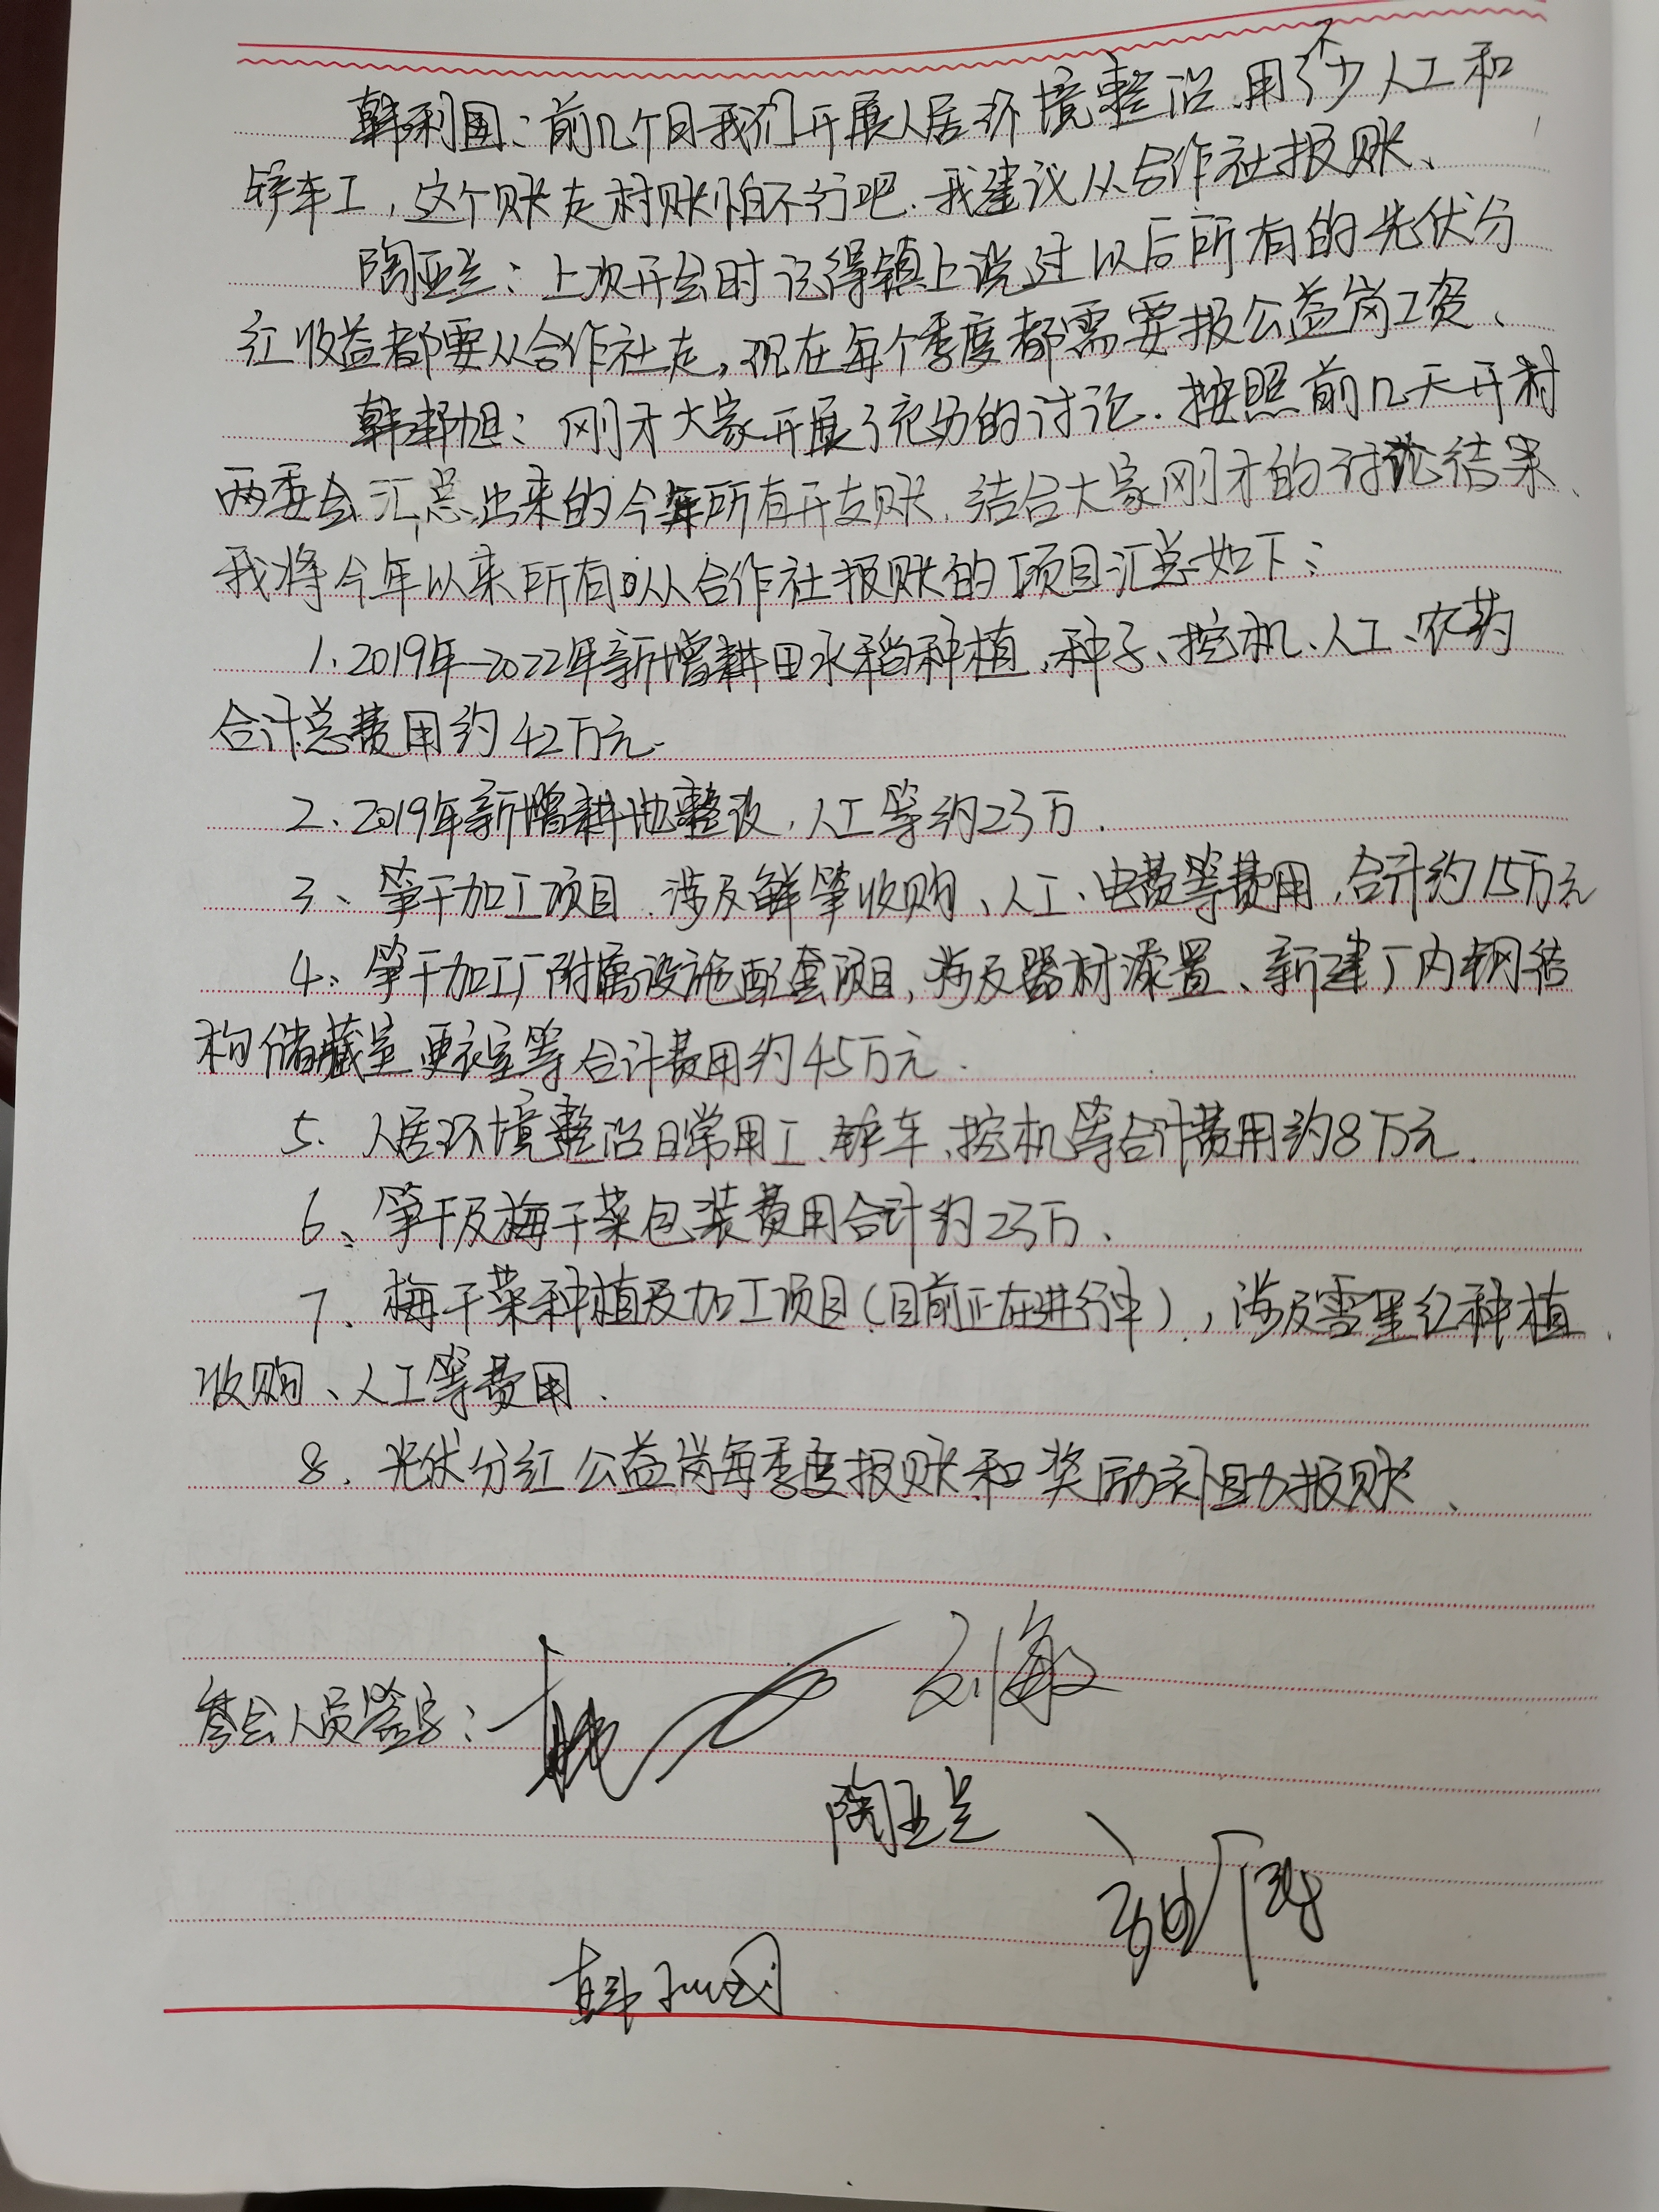 韩利国：前几个月我们开展人居环境整治，用了不少人工和
轿车工，这个账走村账怕不行吧.我建议从合作社报账、
陶亚兰：上次开会时记得镇上说过以后所有的光伏分
红收益都要从合作社走，现在每个季度都需要报公益岗工资、
韩邦旭：刚才大家开展了充分的讨论.按照前几天开村
两委会汇总出来的今年所有开支账，结合大家刚才的讨论结果、
我将今年以来所有从合作社报账的项目汇总如下：
1、2019年-2022年新增耕田水稻种植、种子、挖机、人工、农药
合计总费用约42万元.
2、2019年新增耕地整改，人工等约23万.
3、笋干加工项目.涉及鲜笋收购、人工、电费等费用，合计约15万元
4、笋干加工厂附属设施配套项目，涉及器材添置、新建厂内钢结
构储藏室更衣室等合计费用约45万元.
5、人居环境整治日常用工、轿车、挖机等合计费用约8万元.
6、笋干及梅干菜包装费用合计约23万、
7、梅干菜种植及加工项目（目前正在进行中），涉及雪里红种植、
收购、人工等费用.
8、光伏分红公益岗每季度报账和奖励补助报账、
参会人员签字：
刘敏
陶亚兰
韩利国